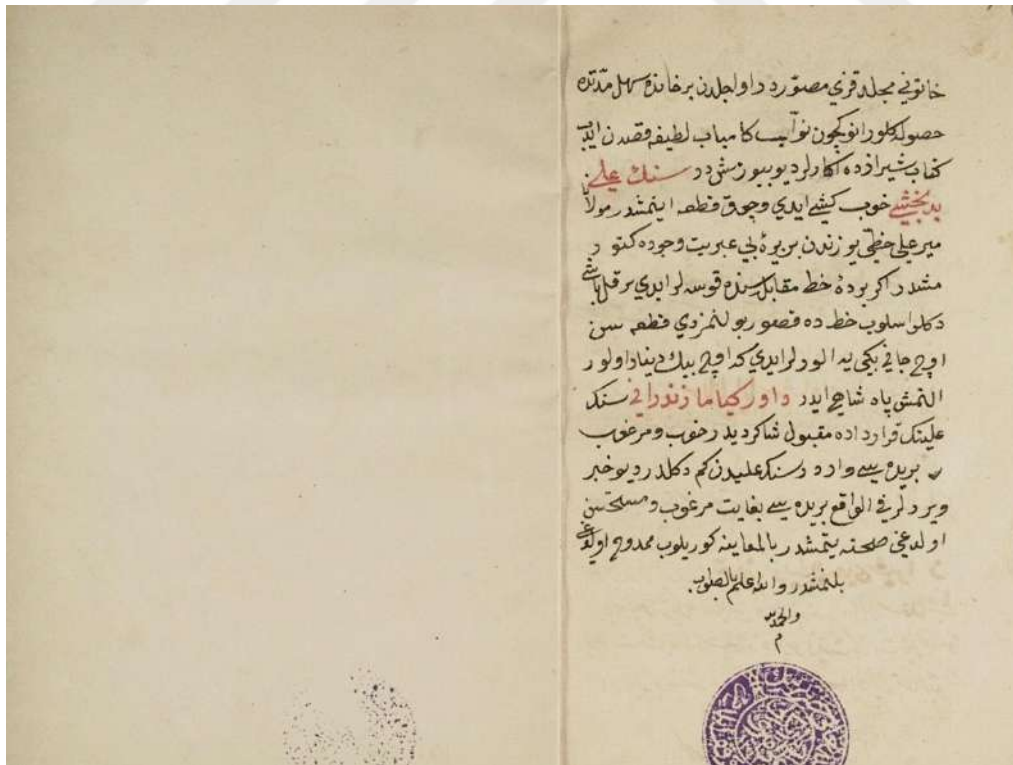 خاتونی مجلد قزی مصوّر در اواجلدن بر خانده سهل مدّتده
حصوله کلور انوکچون نوّاب کامیاب لطیفه قصدن ایدب
کتاب شیرازده اکارلر دیو بیورمش در سنك علی
بدخشی خوب کشی ایدی وچوق قطعه ایتمشدر مولانا
میر علی خطّی یوزندن بریره بی عبریت وجوده کتور
مشدر اکر برده خط مقابله سنده قوسه لر ایدی بر قل باشی
دکلو اسلوب خطده قصور بولنمزدی قطعه سن
اوچ جانی بکی یه الورلر ایدی که اوچ بیك دینار اولور
التمش پاه شاهی ایدر داور کیا مازندرانی سنك
علینك قرارداده مقبول شاکردیدر خوب ومرغوب
بریده سی وارد سنك علیدن کم دکلدر دیو خبر
ویردلر فی الواقع بریده سی بغایت مرغوب ومستحسن
اولدغی صحته یتمشدر بالمعاینه کوریلوب ممدوح اولدغی
بلنمشدر والله اعلم بالصواب
والحمد لله
م